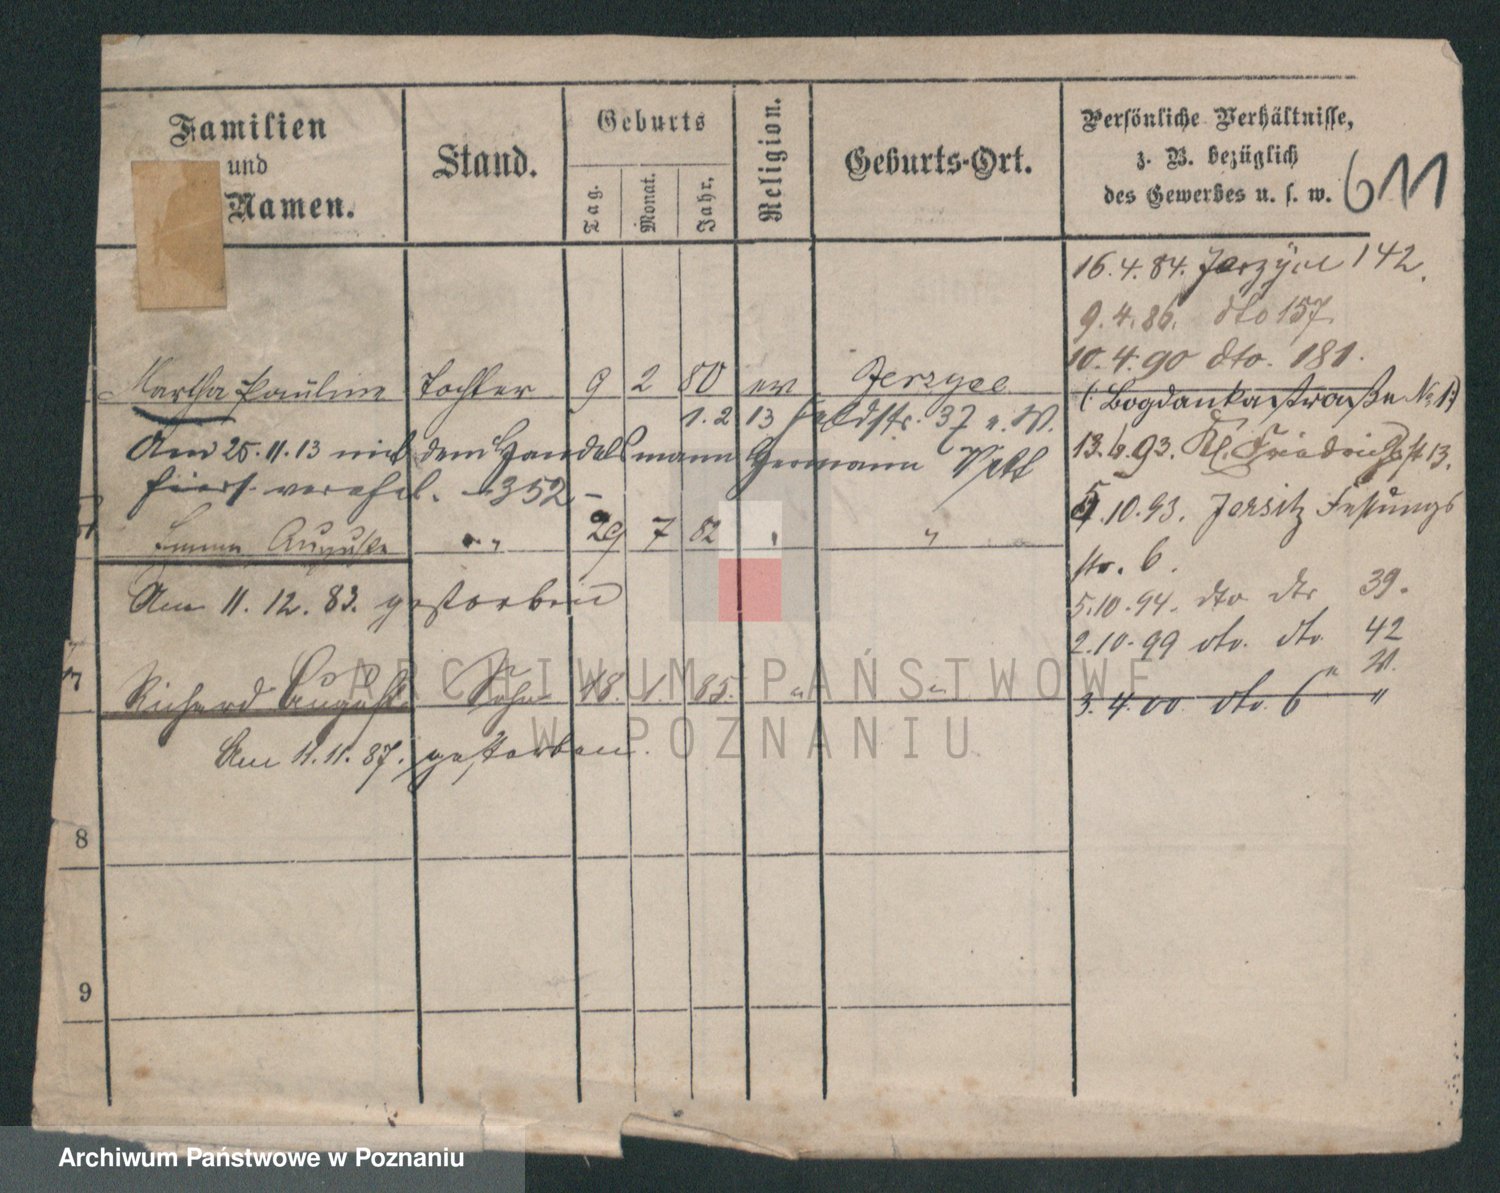 Familien
und
Namen.
Stand.
Geburts
Tag.
Monat.
Jahr.
Religion.
Geburts-Ort.
Persönliche Verhältnisse,
z. B. bezüglich
des Gewerbes u. s. w.
611
16.4.84. Jerzyce 142.
9.4.86. dto 157
10.4.90 dto. 181.
Martha Pauline Tochter 9 2 80 ev Jerzyce
(Bogdankastraße No 1)
1.2 13 Feldstr. 37 n. W.
Am 25.11.13 mit dem Handelsmann Hermann
13.6.93. Kl. Friedrichstr 13.
hiers. verehel. - 352 -
5.10.93. Jersitz Festungs
str. 6.
Emma Auguste " 29 7 82 " "
Am 11.12.83. gestorben
5.10.94. dto dto 39.
2.10.99 dto. dto. 42
" W.
Richard August Sohn 18. 1. 85. " "
3.4.00 dto. 6 "
Am 11.11.87. gestorben.
8
9
ARCHIWUM PAŃSTWOWE
W POZNANIU
Archiwum Państwowe w Poznaniu